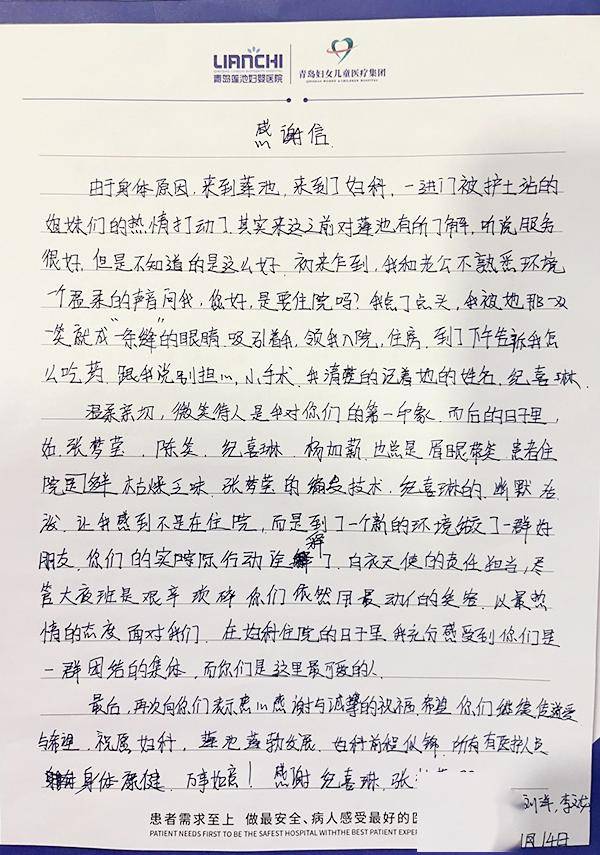 LIANCHI
青岛莲池妇婴医院
青岛妇女儿童医疗集团
感谢信
由于身体原因,来到莲池,来到了妇科,一进门被护士站的
姐妹们的热情打动了.其实来这之前对莲池有所了解,听说服务
很好,但是不知道的是这么好.初来乍到,我和老公不熟悉环境
一个温柔的声音问我,您好,是要住院吗?我点了点头,我被她那一双
笑就成"一条缝"的眼睛.吸引着我,领我入院,住房,到了下午告诉我怎
么吃药.跟我说别担心,小手术.我清楚的记着她的姓名.纪喜琳.
温柔亲切,微笑待人是我对你们的第一印象.而后的日子里,
如.张梦莹.陈笑.纪喜琳.杨加薪.也总是眉眼带笑.患者住
院 枯燥乏味.张梦莹的 技术,纪喜琳的.幽默活
泼.让我感到不是在住院,而是到了一个新的环境结交了一群好
朋友.你们的实际行动诠释了.白衣天使的责任担当,尽
管大夜班是艰辛琐碎你们依然用最动人的笑容.以最热
情的态度面对我们.在妇科住院的日子里我充分感受到你们是
一群团结的集体.而你们是这里最可爱的人.
最后,再次向你们表示衷心感谢与诚挚的祝福.希望你们继续传递爱
与希望.祝愿妇科,莲池蓬勃发展.妇科前程似锦.所有医护人员
身体康健.万事如意!感谢纪喜琳,张
1月14日
患者需求至上 做最安全、病人感受最好的医
PATIENT NEEDS FIRST TO BE THE SAFEST HOSPITAL WITHTHE BEST PATIENT EXPER